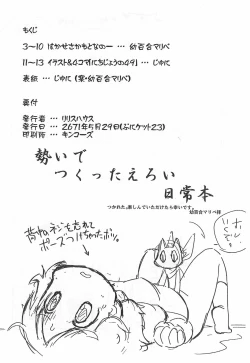 もくじ
3～10 はかせさかもとなのー … 幼百合マリベ
11～13 イラスト&4コマ「にちじょうの49」 … じゅに
表紙 … じゅに(案・幼百合マリベ)
奥付
発行者 … リリスハウス
発行日 … 2671年5月29日(ぷにケット23)
印刷所 … キンコーズ
勢いで
つくったえろい
日常本
つかれた。楽しんでいただけたら幸いです。
幼百合マリベ拝
背中のネジを忘れて
ポーズつけちゃったポリ。